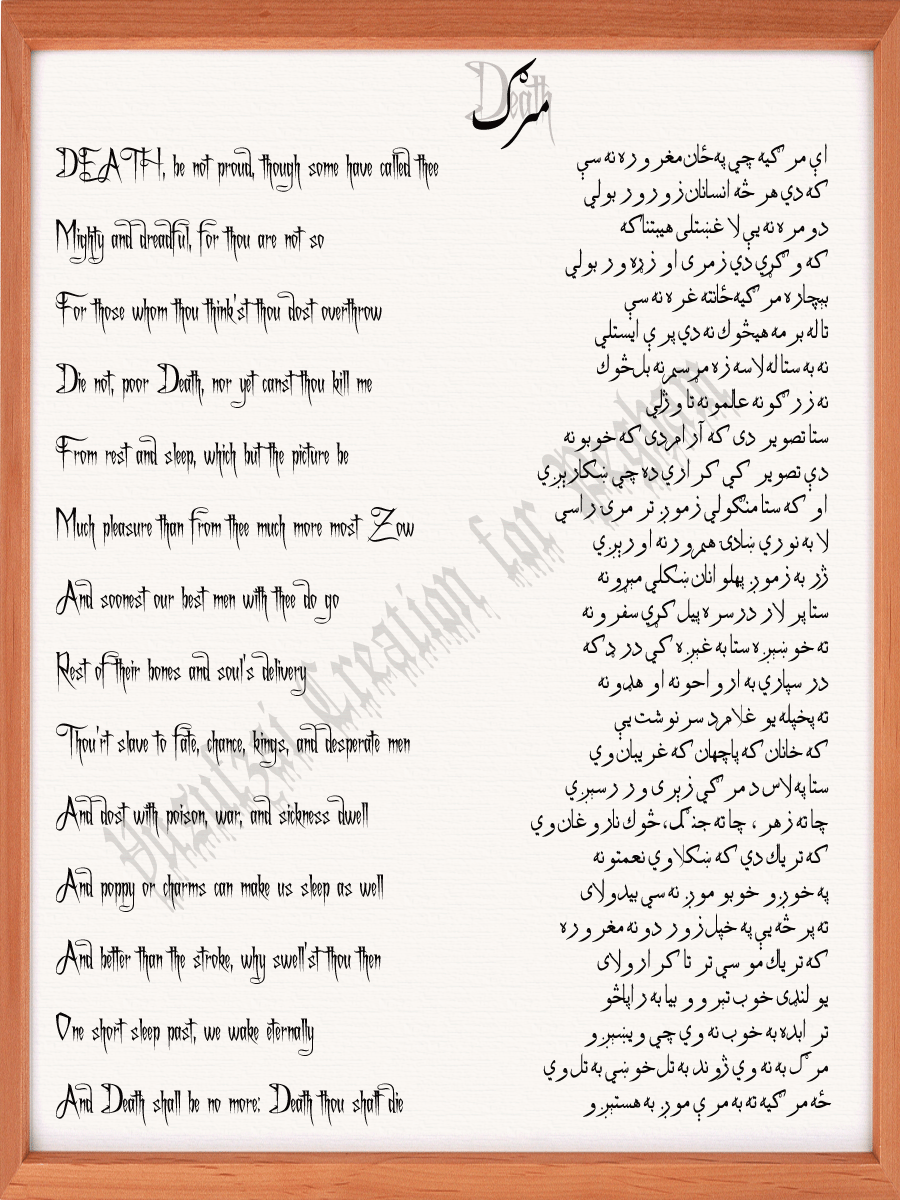 Death
مرګ
DEATH, be not proud, though some have called thee
Mighty and dreadful, for thou are not so
For those whom thou think'st thou dost overthrow
Die not, poor Death, nor yet canst thou kill me
From rest and sleep, which but the picture be
Much pleasure than from thee much more most Zow
And soonest our best men with thee do go
Rest of their bones and soul's delivery
Thou'rt slave to fate, chance, kings, and desperate men
And dost with poison, war, and sickness dwell
And poppy or charms can make us sleep as well
And better than the stroke, why swell'st thou then
One short sleep past, we wake eternally
And Death shall be no more: Death thou shalt die
اې مرګیه چي په ځان مغروره نه سې
که دي هر څه انسانان زورور بولي
دومره نه یې لا غښتلی هیبتناکه
که وګړي دي زمری او زړه ور بولي
بېچاره مرګیه ځانته غره نه سې
تاله برمه هیڅوك نه دي پرې ایستلي
نه به ستا له لاسه زه مړسم نه بل څوك
نه زرګونه علمونه تا وژلي
ستا تصویر دی که آرام دی که خوبونه
دې تصویر کي کراري ده چي ښکارېږي
او که ستا منګولي زموږ تر مرۍ راسي
لا به نوري ښادۍ هم ورنه اورېږي
ژر به زموږ پهلوانان ښکلي مېړونه
ستا پر لار درسره پیل کړي سفرونه
ته خوښېږه ستا به غېږه کي در ډکه
در سپاري به ارواحونه او هډونه
ته پخپله یو غلام د سرنوشت یې
که خانان که پاچهان که غریبان وي
ستا په لاس د مرګي زېری ور رسېږي
چاته زهر ، چاته جنګ، څوك ناروغان وي
که تریاك دي که ښکلاوي نعمتونه
په خوږو خوبو موږ نه سي بېدولای
ته پر څه یې په خپل زور دونه مغروره
که تریاك مو سي تر تا کرارولای
یو لنډی خوب تېروو بیا به راپاڅو
تر ابده به خوب نه وي چي ویښېږو
مرګ به نه وي ژوند به تل خوښي به تل وي
ځه مرګیه ته به مرې موږ به هستېږو
Yusufzai Creation for Pegham